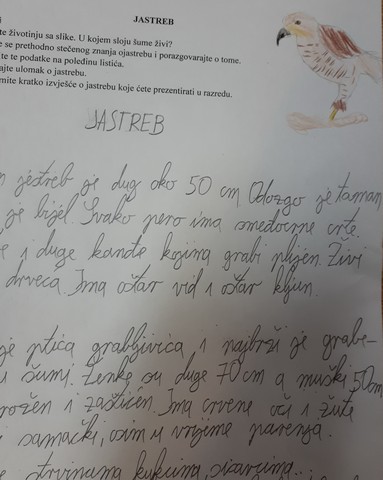 JASTREB
te životinju sa slike. U kojem sloju šume živi?
e se prethodno stečenog znanja ojastrebu i porazgovarajte o tome.
ite te podatke na poleđinu listića.
ajte ulomak o jastrebu.
mite kratko izvješće o jastrebu koje ćete prezentirati u razredu.
JASTREB
n jestreb je dug oko 50 cm Odozgo je taman
je bijel. Svako pero ima smeđocrne crte.
e i duge kanđe kojima grabi plijen. Živi
drveća. Ima oštar vid i oštar kljun.
je ptica grabljivica i najbrži je grabe-
u šumi. Ženke su duge 70 cm a muški 50cm
rožen i zaštićen. Ima crvene oči i žute
samački, osim u vrijeme parenja.
strvinama kukcima,